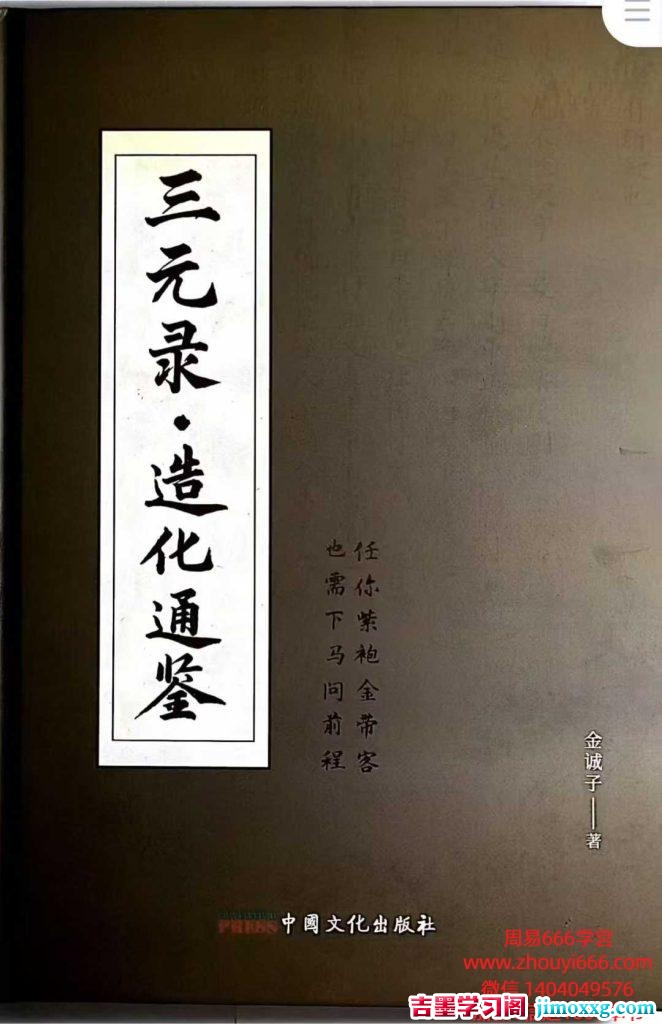 三元录·造化通鉴
任你紫袍金带客
也需下马问前程
金诚子——著
PRESS 中國文化出版社
周易666学宫
www.zhouyi666.com
微信 1404049576
吉墨学习阁 jimoxxg.com